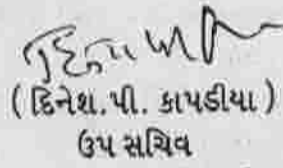 ( દિનેશ.પી. કાપડીયા )
ઉપ સચિવ